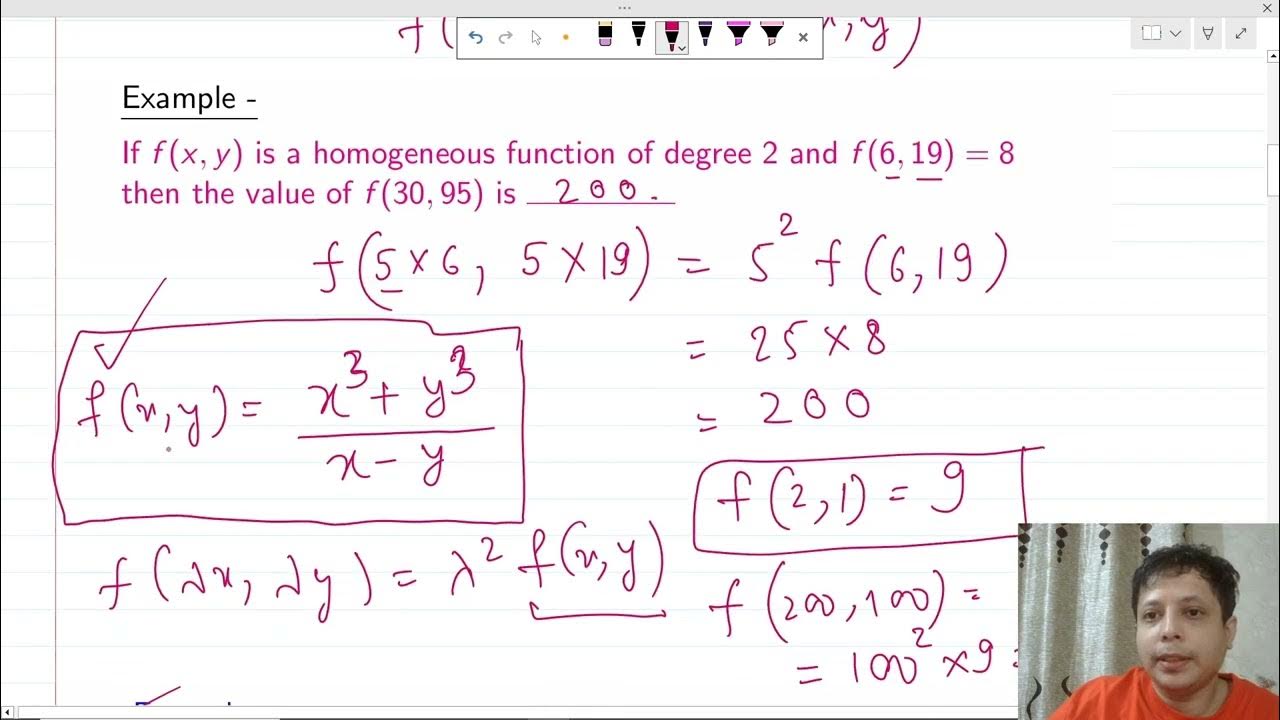 f(
x, y)
Example -
If f(x, y) is a homogeneous function of degree 2 and f(6, 19) = 8
then the value of f(30, 95) is 200.
f(5 × 6, 5 × 19) = 5² f(6, 19)
= 25 × 8
= 200
f(x, y) = x³ + y³ / x - y
f(λx, λy) = λ² f(x, y)
f(2, 1) = 9
f(200, 100) =
= 100² × 9 =